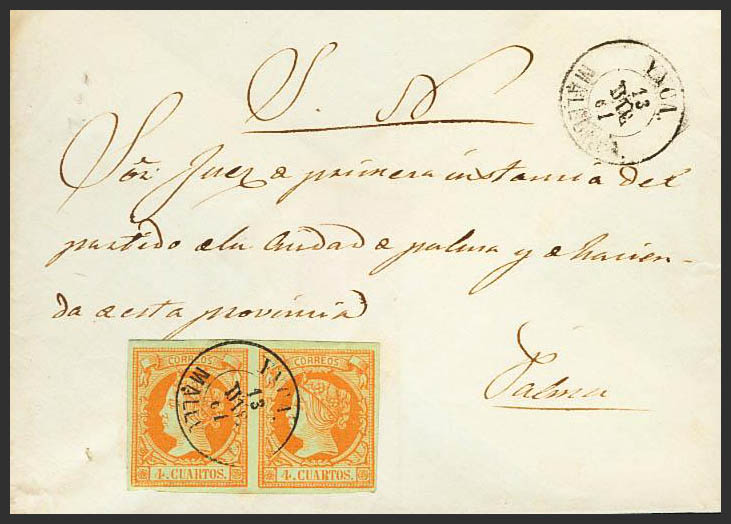 S. N
YNCA.
13
DIC
61
MALLORCA.
Sőr. Juez de primera instancia del
partido de la Ciudad de palma y de hacien-
da de esta provincia
Palma
CORREOS CORREOS
4 CUARTOS. 4 CUARTOS.
YNCA.
13
DIC
61
MALL